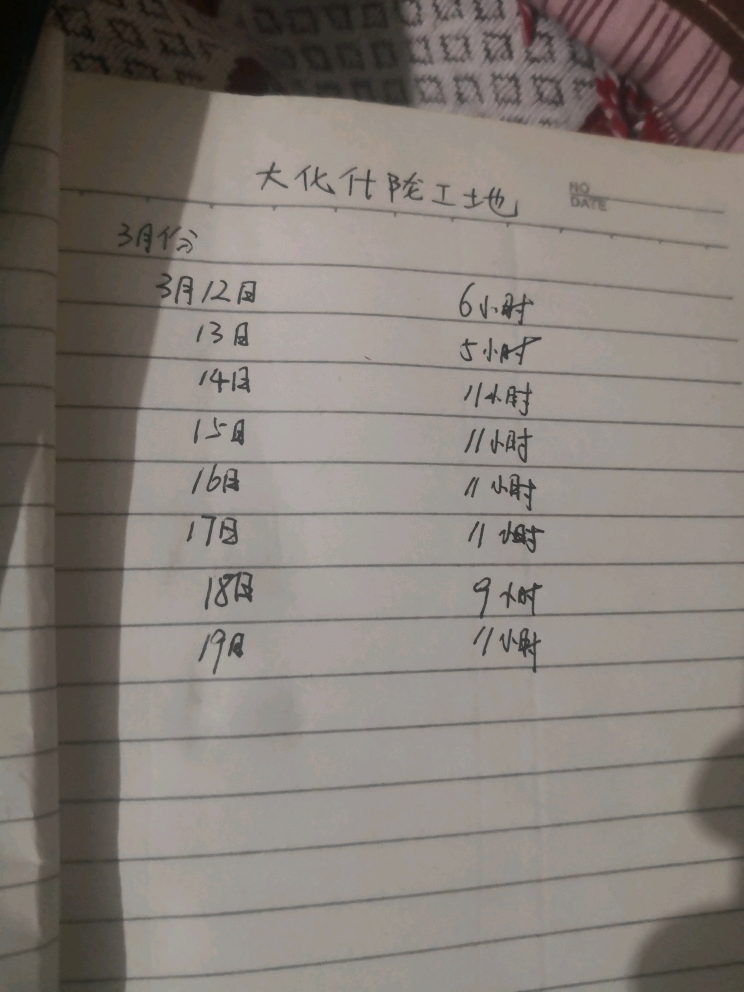 大化什陇工地
NO
DATE
3月份
3月12日 6小时
13日 5小时
14日 11小时
15日 11小时
16日 11小时
17日 11小时
18日 9小时
19日 11小时